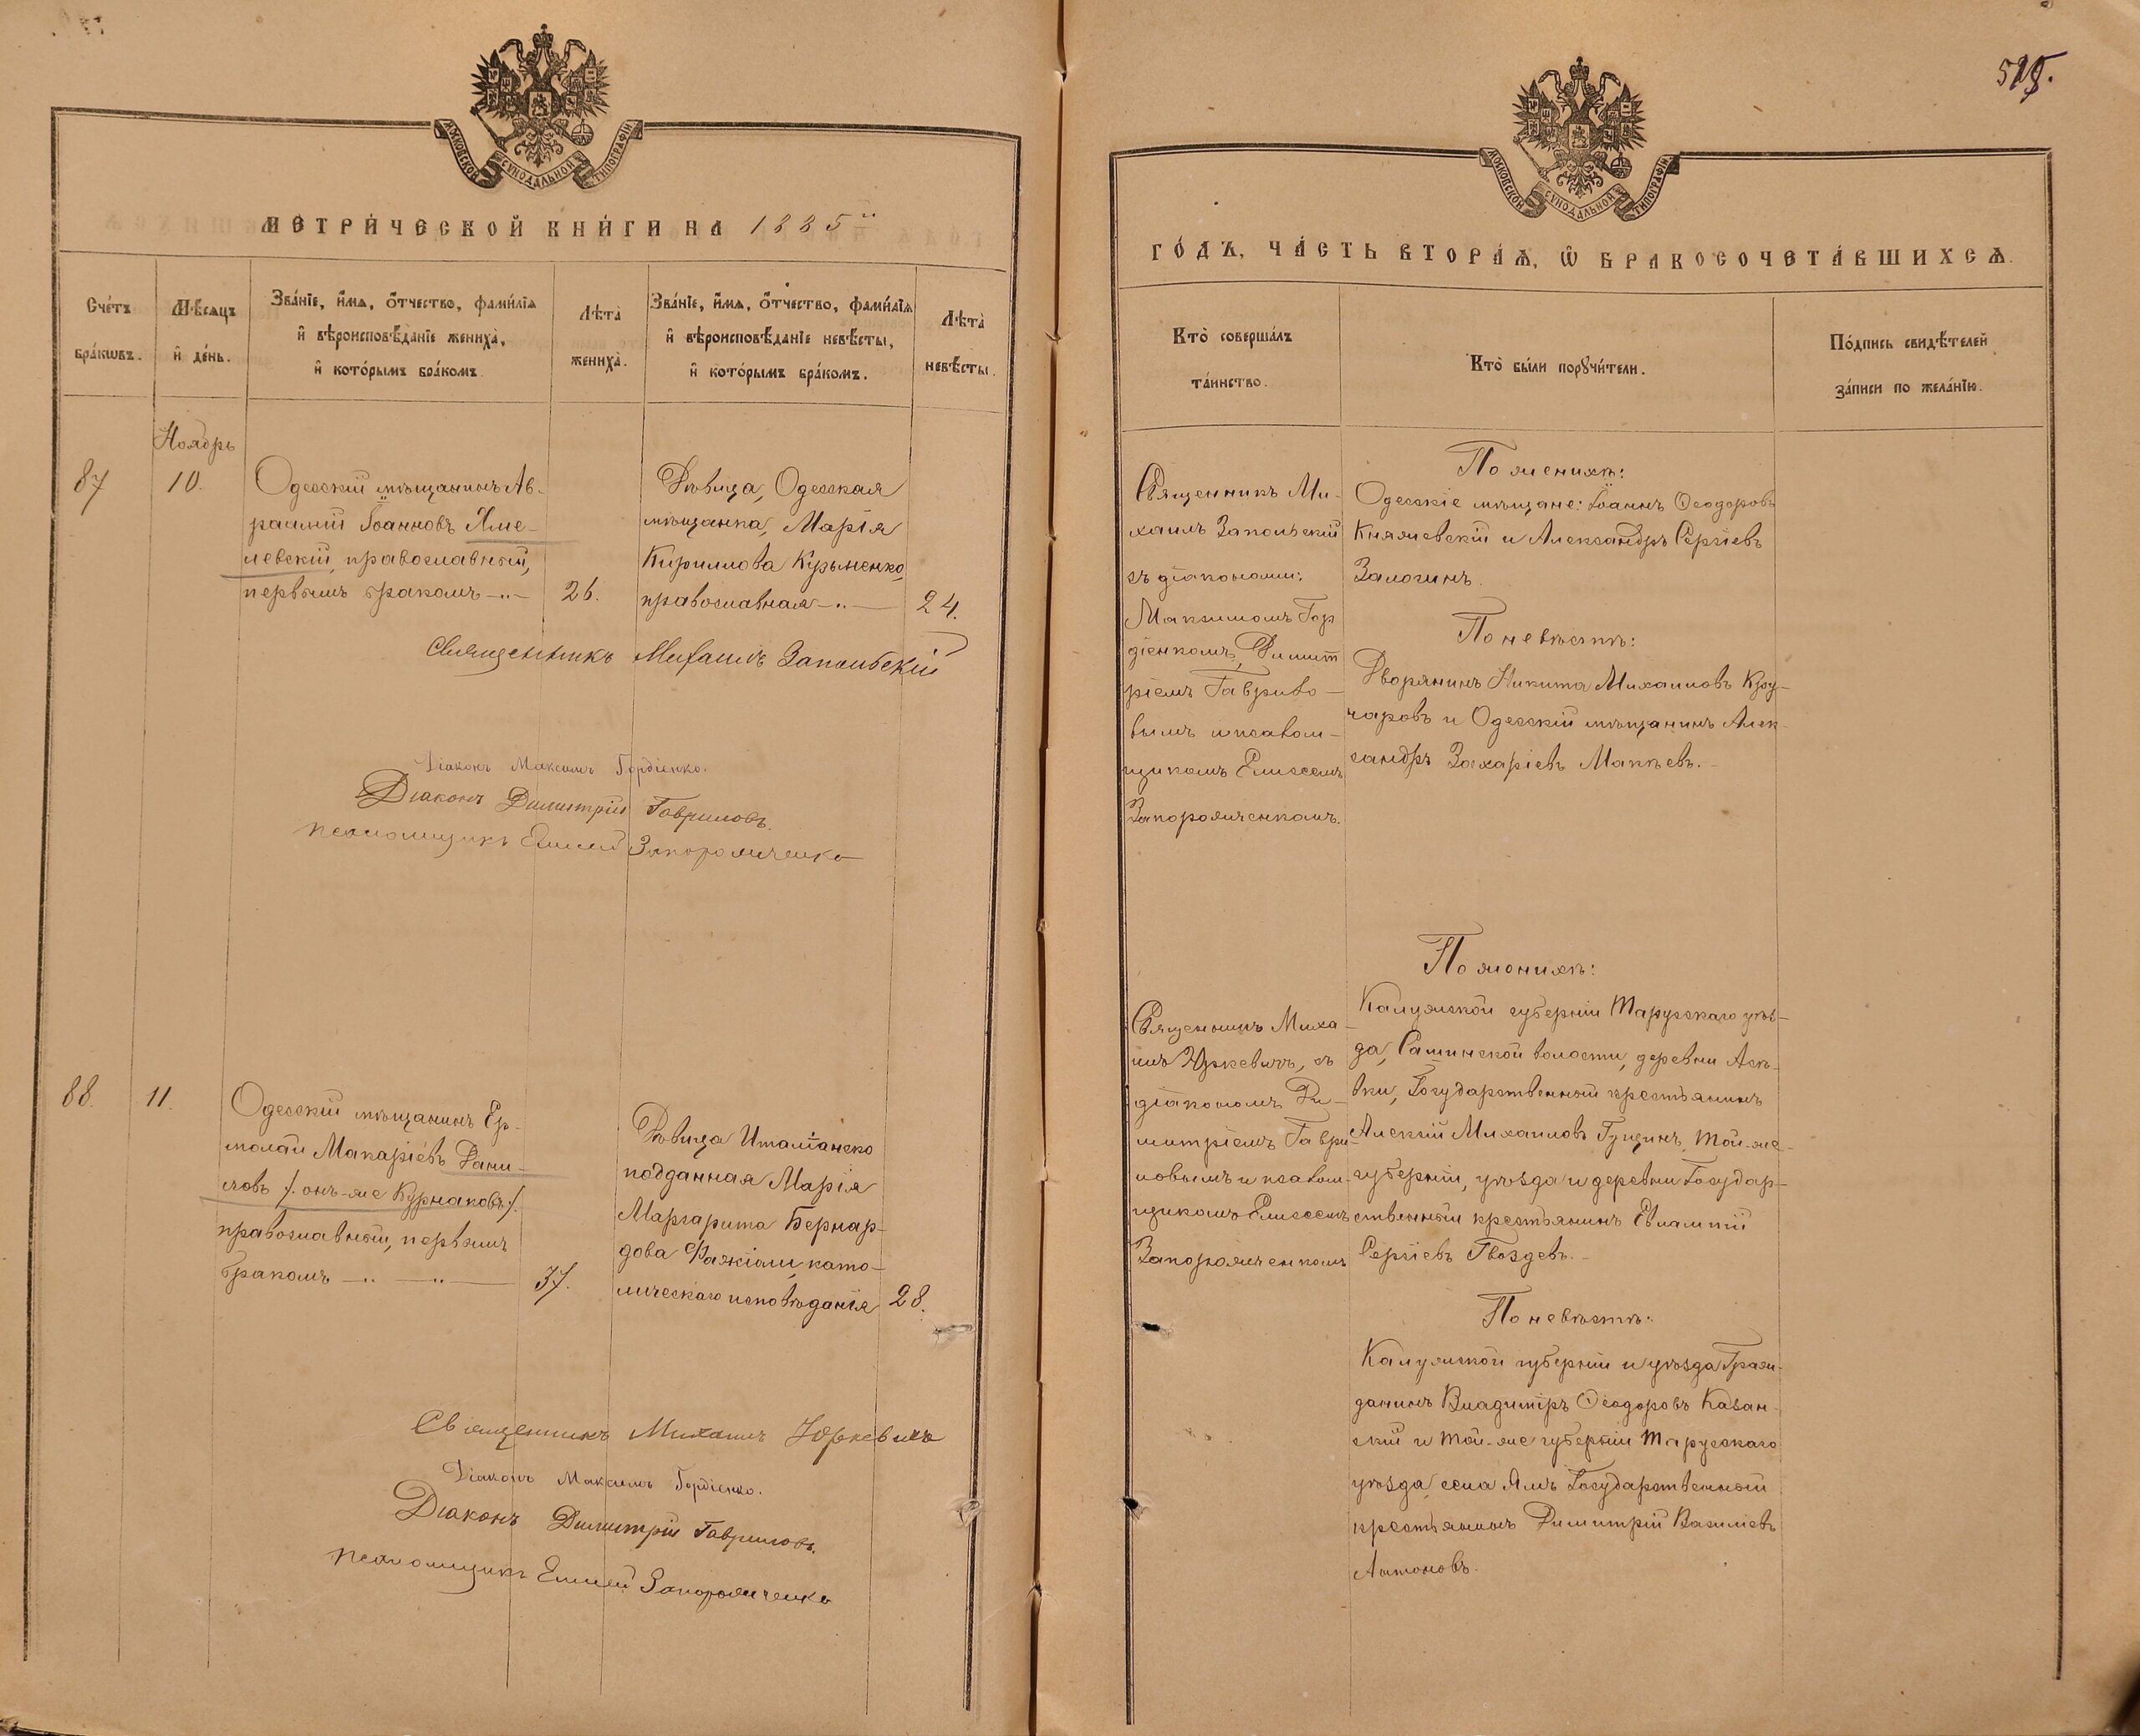 МОСКОВСКОЙ СѴНОДАЛЬНОЙ ТИПОГРАФІИ
МЕТРИ́ЧЕСКОЙ КНИ́ГИ НА 1885й
Сче́тъ бра́кωвъ.
Мѣ́сяцъ и҆ де́нь.
Зва́нїе, и҆́мѧ, ѻ҆́тчество, фами́лїѧ
и҆ вѣроисповѣ́данїе жениха̀,
и҆ кото́рымъ бра́комъ.
Лѣ́та̀ жениха̀.
Зва́нїе, и҆́мѧ, ѻ҆́тчество, фами́лїѧ
и҆ вѣроисповѣ́данїе невѣ́сты,
и҆ кото́рымъ бра́комъ.
Лѣ́та̀ невѣ́сты.
Ноябрь
87
10.
Одесскій мѣщанинъ Ав-
раамій Іоанновъ Хме-
левскій, православный,
первымъ бракомъ
26.
Дѣвица, Одесская
мѣщанка, Марія
Кириллова Кузьменко,
православная
24.
Священникъ Михаилъ Запольскій
Діаконъ Максимъ Гордіенко.
Діаконъ Димитрій Гавриловъ.
Псаломщикъ Елисей Запорожченко
88.
11.
Одесскій мѣщанинъ Ер-
молай Макаріевъ Дани-
ловъ /. онъ-же Курнаковъ /.
православный, первымъ
бракомъ
37.
Дѣвица Италіанско
подданная Марія
Маргарита Бернар-
дова Фажіоли, като-
лическаго исповѣданія
28.
Священникъ Михаилъ Юркевичъ
Діаконъ Максимъ Гордіенко.
Діаконъ Димитрій Гавриловъ.
Псаломщикъ Елисей Запорожченко
МОСКОВСКОЙ СѴНОДАЛЬНОЙ ТИПОГРАФІИ
ГО́ДЪ, ЧА́СТЬ ВТОРА́Ѧ, Ѽ БРАКОСОЧЕТА́ВШИХСѦ.
Кто̀ соверша́лъ
та́инство.
Кто̀ бы́ли порꙋчи́тели.
По́дпись свидѣ́телей
за́писи по жела́нїю.
Священникъ Ми-
хаилъ Запольскій
съ діаконами:
Максимомъ Гор
діенкомъ, Димит
ріемъ Гаврило-
вымъ и псалом-
щикомъ Елисеемъ
Запорожченкомъ.
По женихѣ:
Одесскіе мѣщане: Іоаннъ Ѳеодоровъ
Княжевскій и Александръ Сергіевъ
Залогинъ.
По невѣстѣ:
Дворянинъ Никита Михаиловъ Кру-
чаровъ и Одесскій мѣщанинъ Алек-
сандръ Захаріевъ Макѣевъ.
Священникъ Миха-
илъ Юркевичъ, съ
діакономъ Ди-
митріемъ Гаври
ловымъ и псалом-
щикомъ Елисеемъ
Запорожченкомъ
По женихѣ:
Калужской губерніи Тарусскаго уѣз-
да, Сашинской волости, деревни Асѣ-
вки, Государственный крестьянинъ
Алексій Михаиловъ Гущинъ, той-же
губерніи, уѣзда и деревни Государ-
ственный крестьянинъ Евлампій
Сергіевъ Гвоздевъ.
По невѣстѣ:
Калужской губерніи и уѣзда Граж-
данинъ Владиміръ Ѳеодоровъ Казан-
скій и той-же губерніи Тарусскаго
уѣзда, села Ямъ Государственный
крестьянинъ Димитрій Василіевъ
Антоновъ.